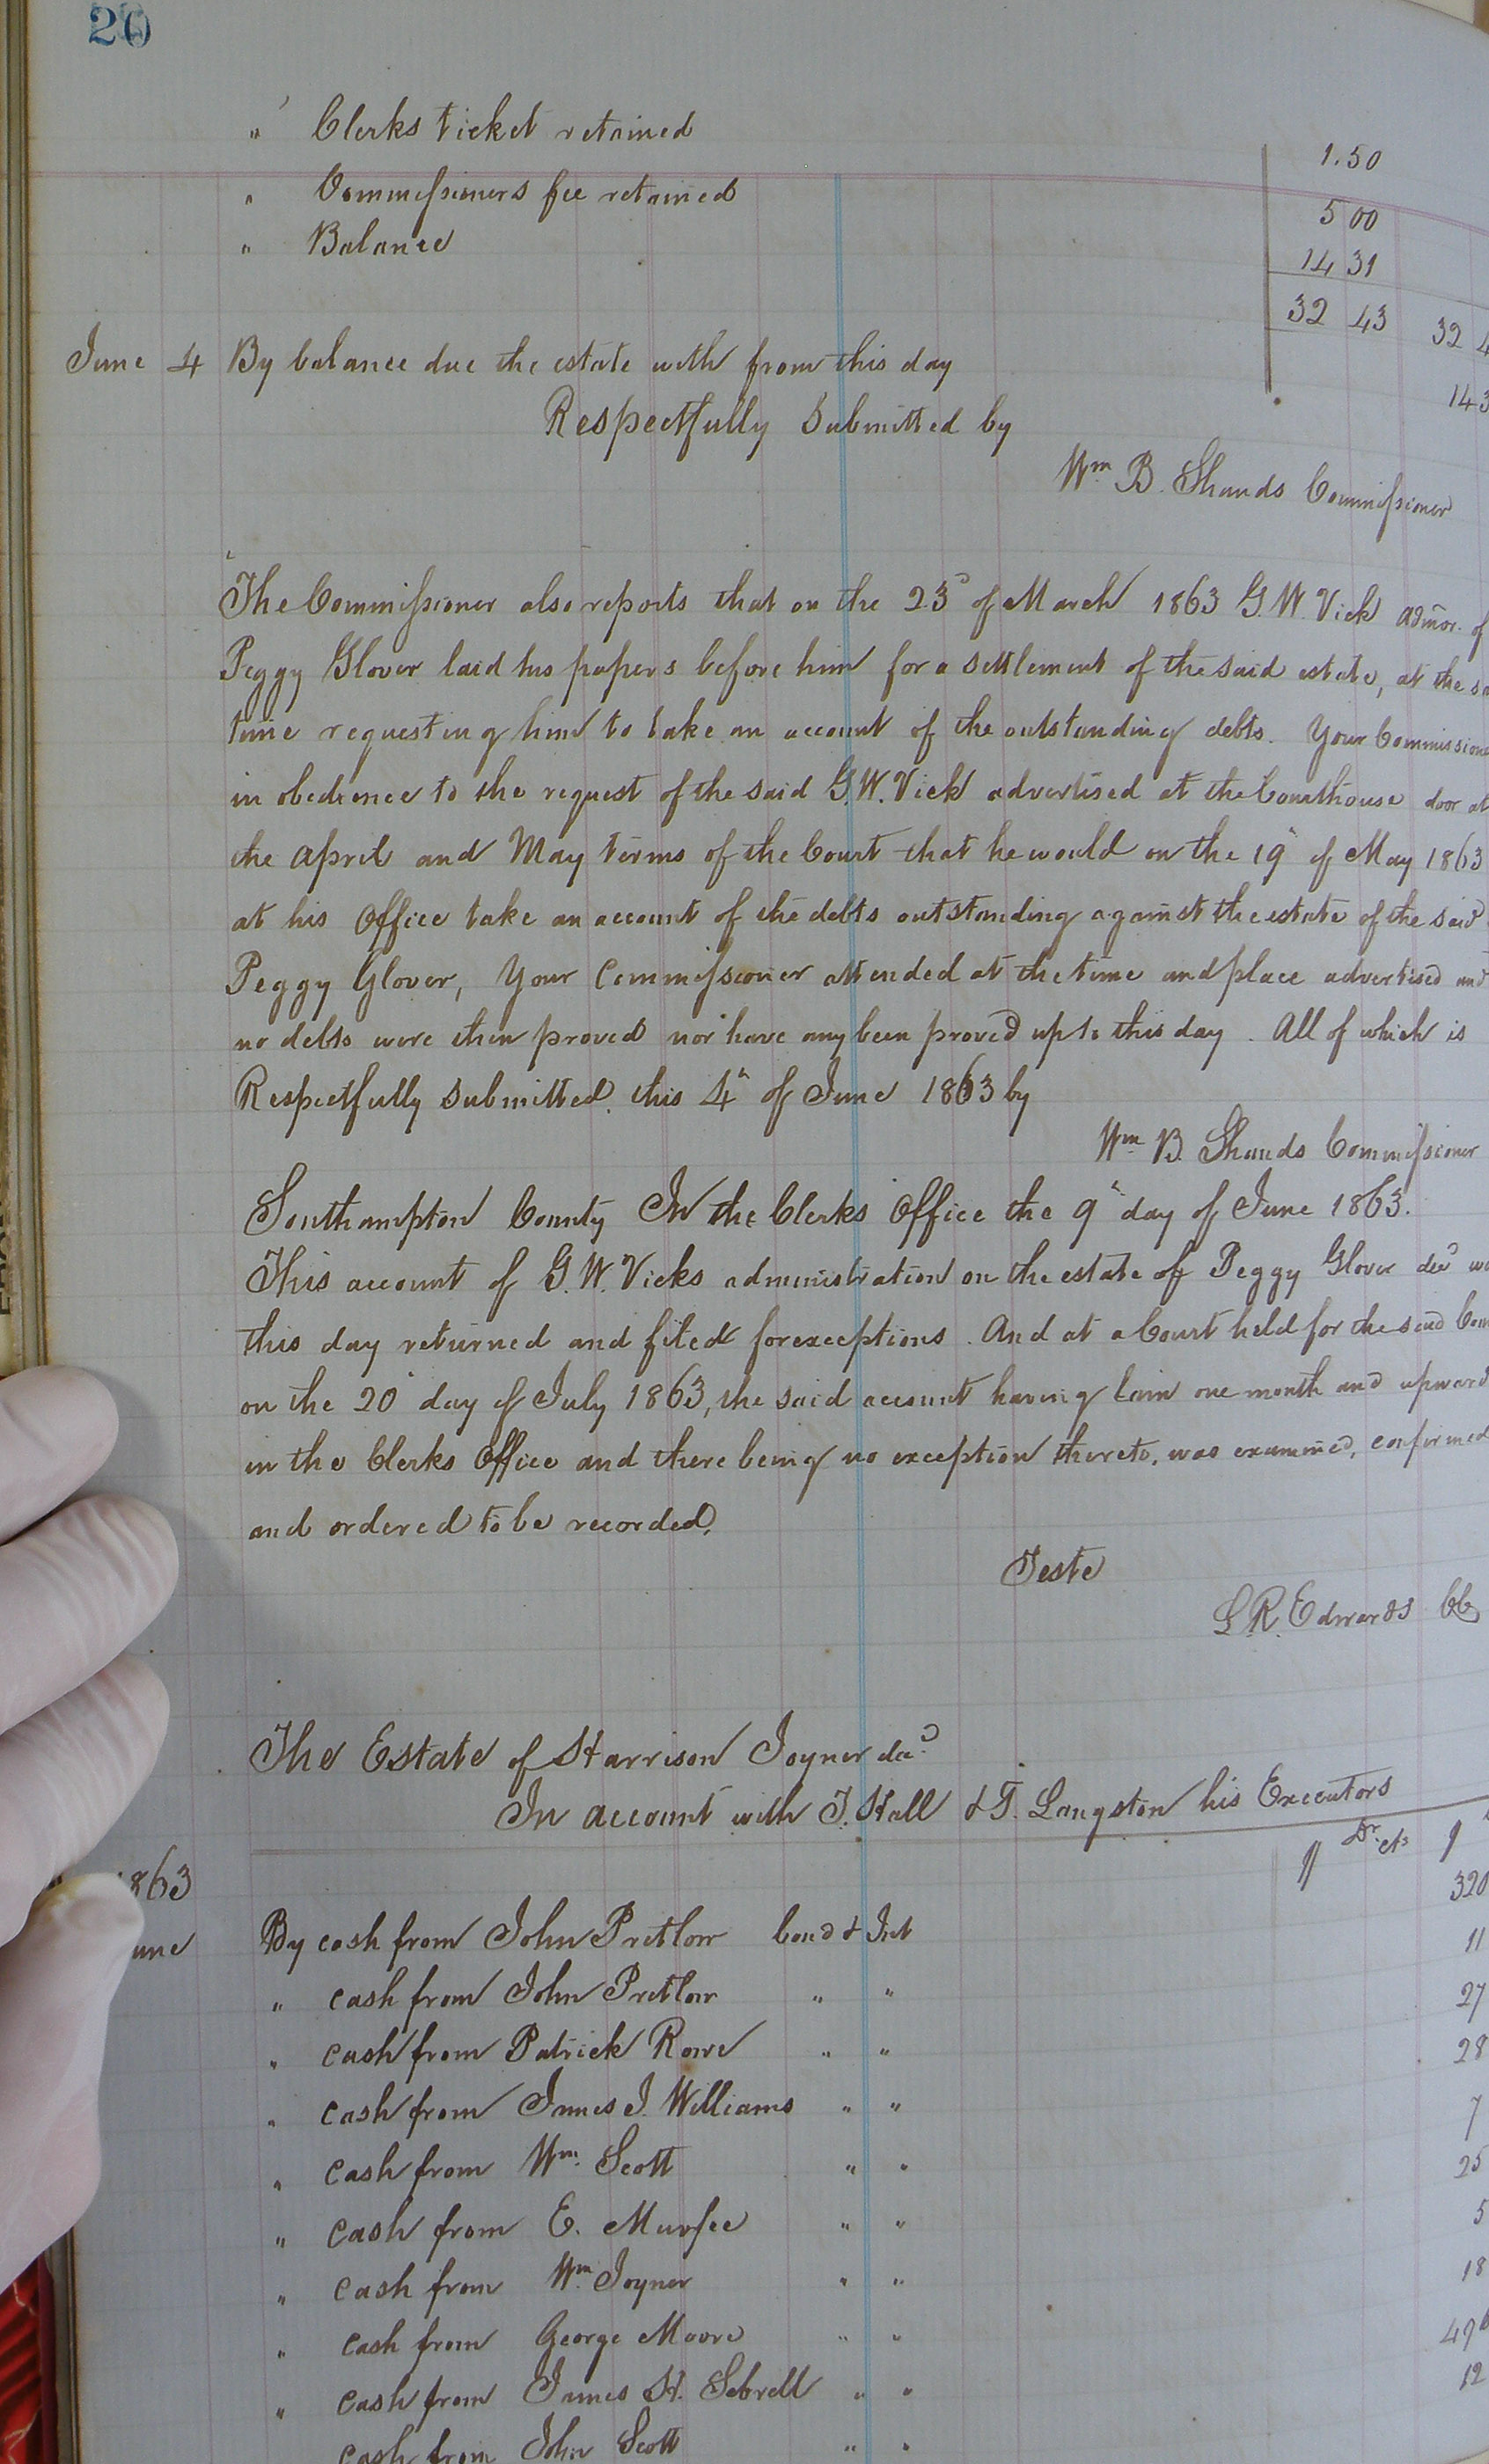 20
" Clerks ticket retained 1.50
" Commissioners fee retained 5 00
" Balance 14 31
32 43 32 4
June 4 By balance due the estate with from this day 143
Respectfully Submitted by
Wm. B. Shands Commissioner
The Commissioner also reports that on the 23d of March 1863 G. W. Vick admor. of
Peggy Glover laid his papers before him for a settlement of the said estate, at the sa
time requesting him to take an account of the outstanding debts. Your Commissione
in obedience to the request of the said G. W. Vick advertised at the Courthouse door at
the April and May terms of the Court that he would on the 19" of May 1863
at his Office take an account of the debts outstanding against the estate of the said
Peggy Glover, Your Commissioner attended at the time and place advertised and
no debts were then proved nor have any been proved up to this day. All of which is
Respectfully submitted. this 4" of June 1863 by
Wm. B. Shands Commissioner
Southampton County In the Clerks Office the 9" day of June 1863.
This account of G. W. Vicks administration on the estate of Peggy Glover decd wa
this day returned and filed for exceptions. And at a Court held for the said Coun
on the 20" day of July 1863, the said account having lain one month and upward
in the Clerks Office and there being no exception thereto, was examined, confirmed
and ordered to be recorded.
Teste
L. R. Edwards CC
The Estate of Harrison Joyner decd.
In account with J. Hall & T. Langston his Executors
Dr. cts
1863 320
une By cash from John Pretlow bond & Int 11
" cash from John Pretlow " " 27
" cash from Patrick Rowe " " 28
" cash from James J. Williams " " 7
" cash from Wm. Scott " " 25
" cash from E. Murfee " " 5
" cash from Wm. Joyner " " 18
" cash from George Moore " " 496
" cash from James H. Sebrell " " 12
cash from John Scott " "